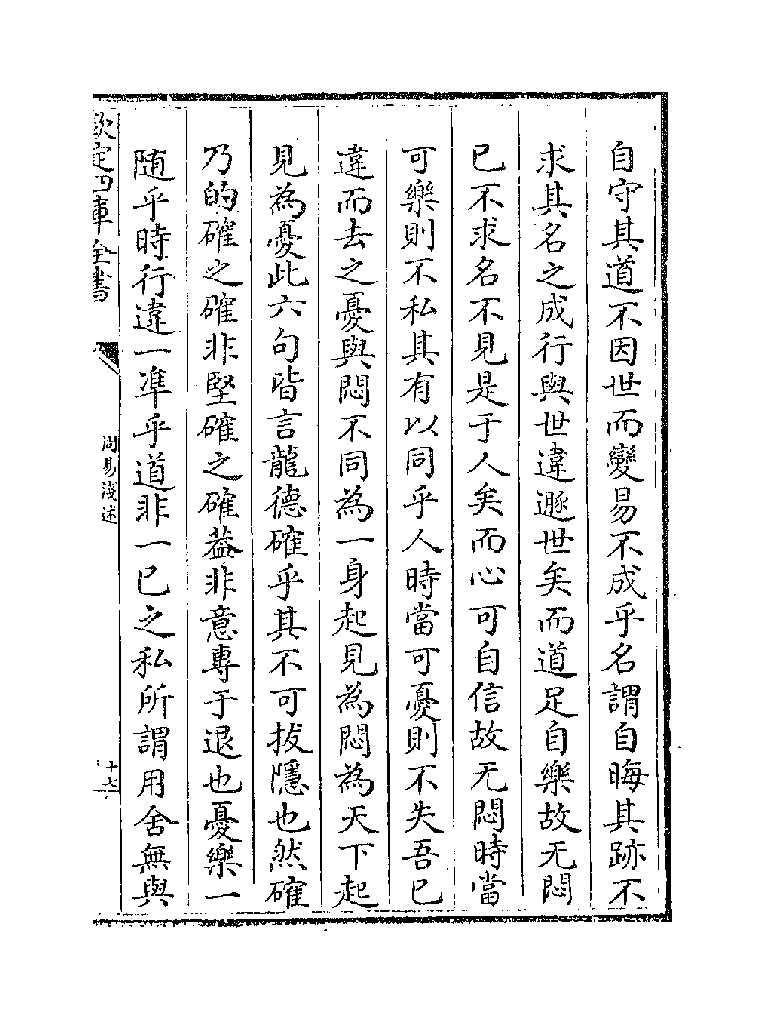 自守其道不因世而變易不成乎名謂自晦其跡不
求其名之成行與世違遯世矣而道足自樂故无悶
已不求名不見是于人矣而心可自信故无悶時當
可樂則不私其有以同乎人時當可憂則不失吾已
違而去之憂與悶不同為一身起見為悶為天下起
見為憂此六句皆言龍德確乎其不可拔隱也然確
乃的確之確非堅確之確葢非意專于退也憂樂一
隨乎時行違一準乎道非一已之私所謂用舍無與
欽定四庫全書
周易淺述